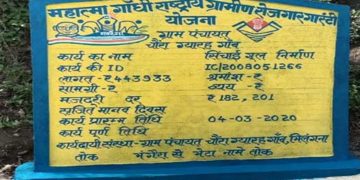 महात्मा गाँधी राष्ट्रीय ग्रामीण रोजगार गारंटी
योजना
ग्राम पंचायत
चौरा ग्यारह गाँव
कार्य का नाम सिंचाई गूल निर्माण
कार्य की ID IC/2008051266
लागत-₹443933 श्रमांश-₹
सामग्री-₹ व्यय-₹
मजदूरी दर ₹182, 201
सृजित मानव दिवस
कार्य प्रारम्भ तिथि 04-03-2020
कार्य पूर्ण तिथि
कार्यदायी संस्था-ग्राम पंचायत चौरा ग्यारह गाँव, भिलंगना
तोक से भेटा नामे तोक